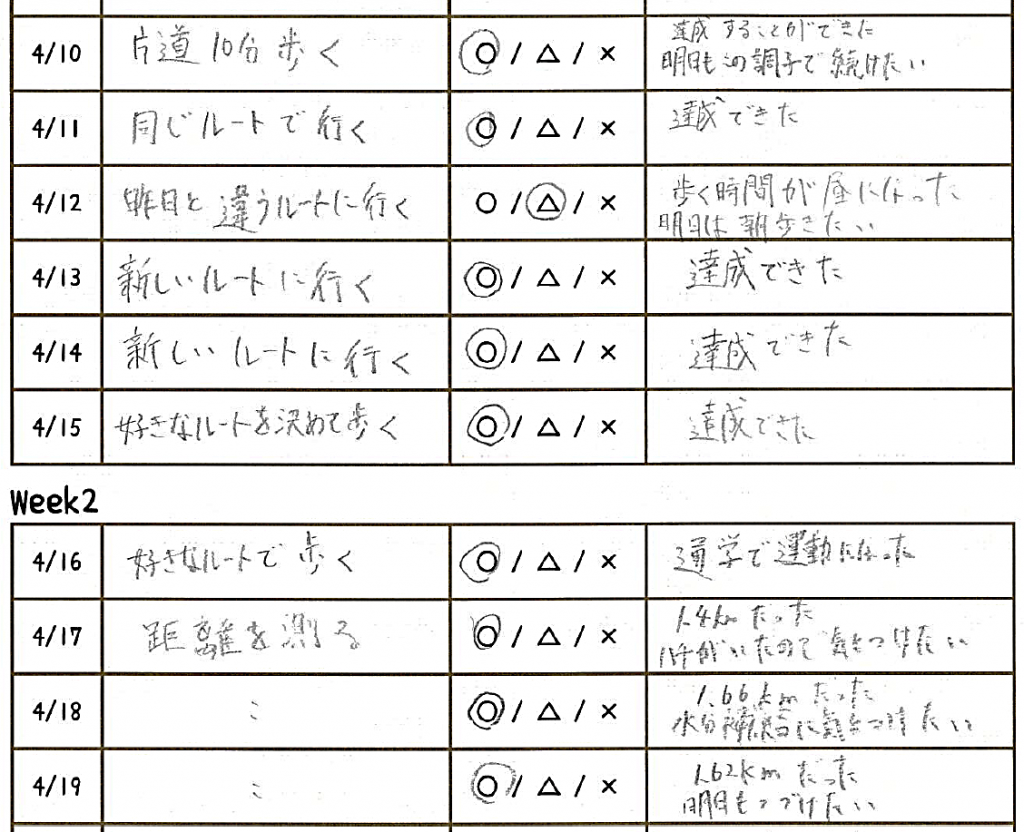 4/10 片道10分歩く ○ / △ / × 達成することができた
明日もこの調子で続けたい
4/11 同じルートで行く ○ / △ / × 達成できた
4/12 昨日と違うルートに行く ○ / △ / × 歩く時間が昼になった
明日は朝歩きたい
4/13 新しいルートに行く ○ / △ / × 達成できた
4/14 新しいルートに行く ○ / △ / × 達成できた
4/15 好きなルートを決めて歩く ○ / △ / × 達成できた
Week2
4/16 好きなルートで歩く ○ / △ / × 通学で運動になった
4/17 距離を測る ○ / △ / × 1.4kmだった
ハチがいたので気をつけたい
4/18 〃 ○ / △ / × 1.66kmだった
水分補給に気をつけたい
4/19 〃 ○ / △ / × 1.62kmだった
明日もつづけたい